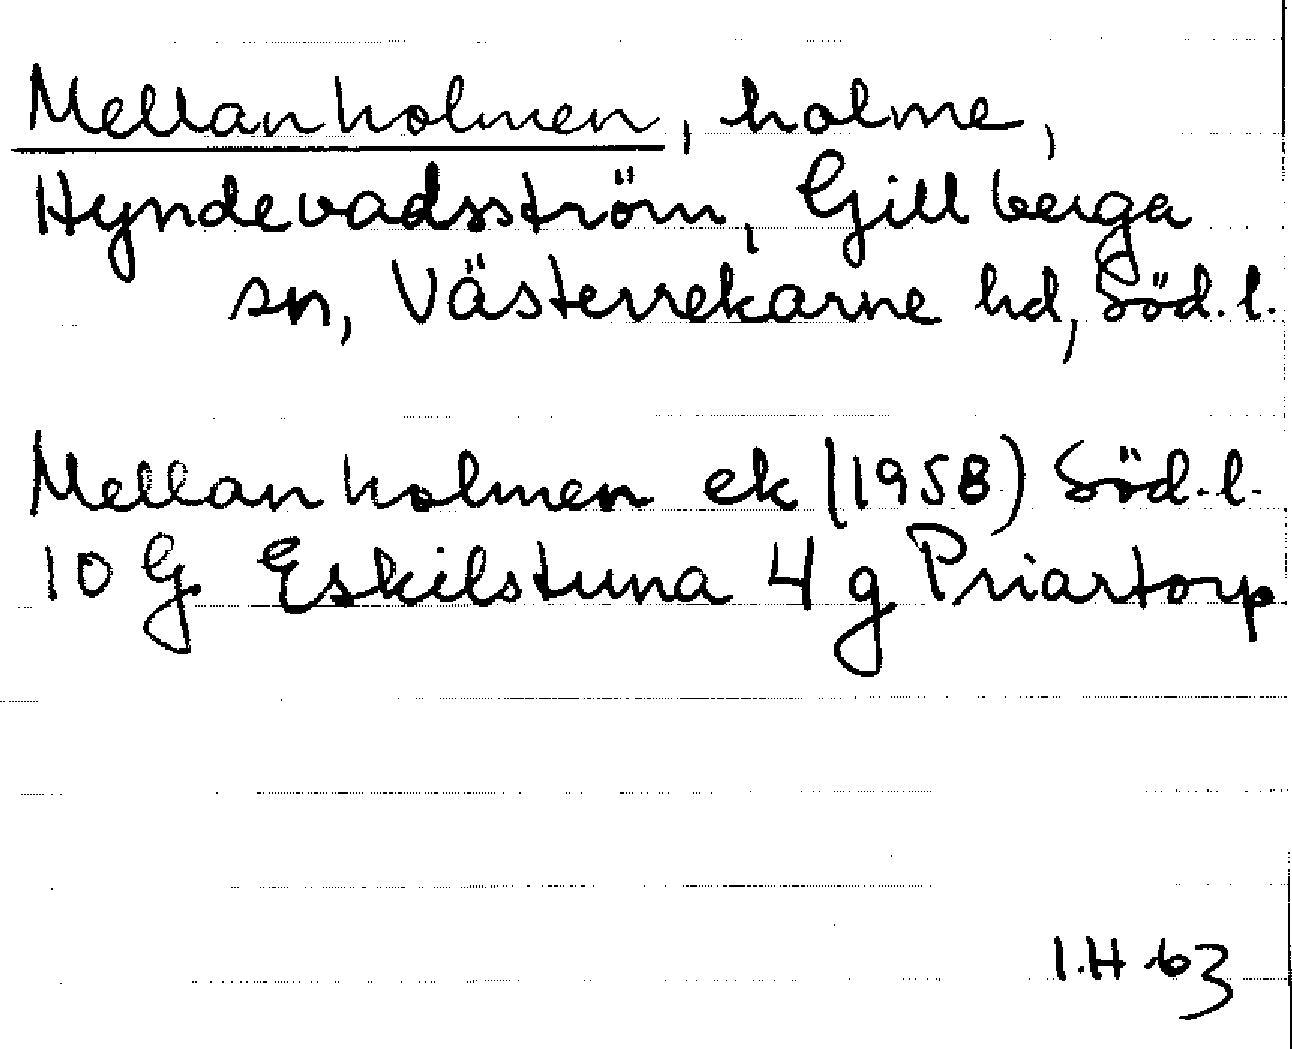 Mellanholmen, holme,
Hyndevadsström, Gillberga
sn, Västerrekarne hd, Söd.l.
Mellanholmen ek (1958) Söd.l.
10 G Eskilstuna 4 g Priartorp
I.H 63